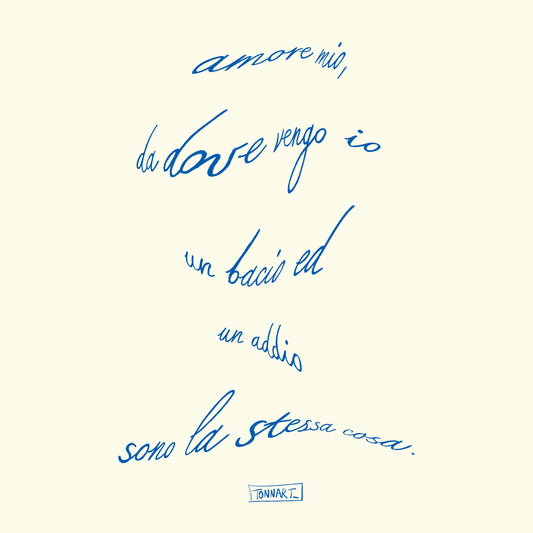 amore mio,
da dove vengo io
un bacio ed
un addio
sono la stessa cosa.
TONNART_